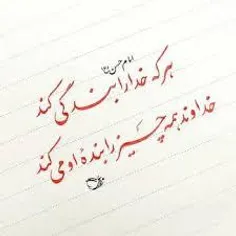 امام حسن (ع)
هر که خدا را بندگی کند
خداوند همه چیز را بندهٔ او می کند